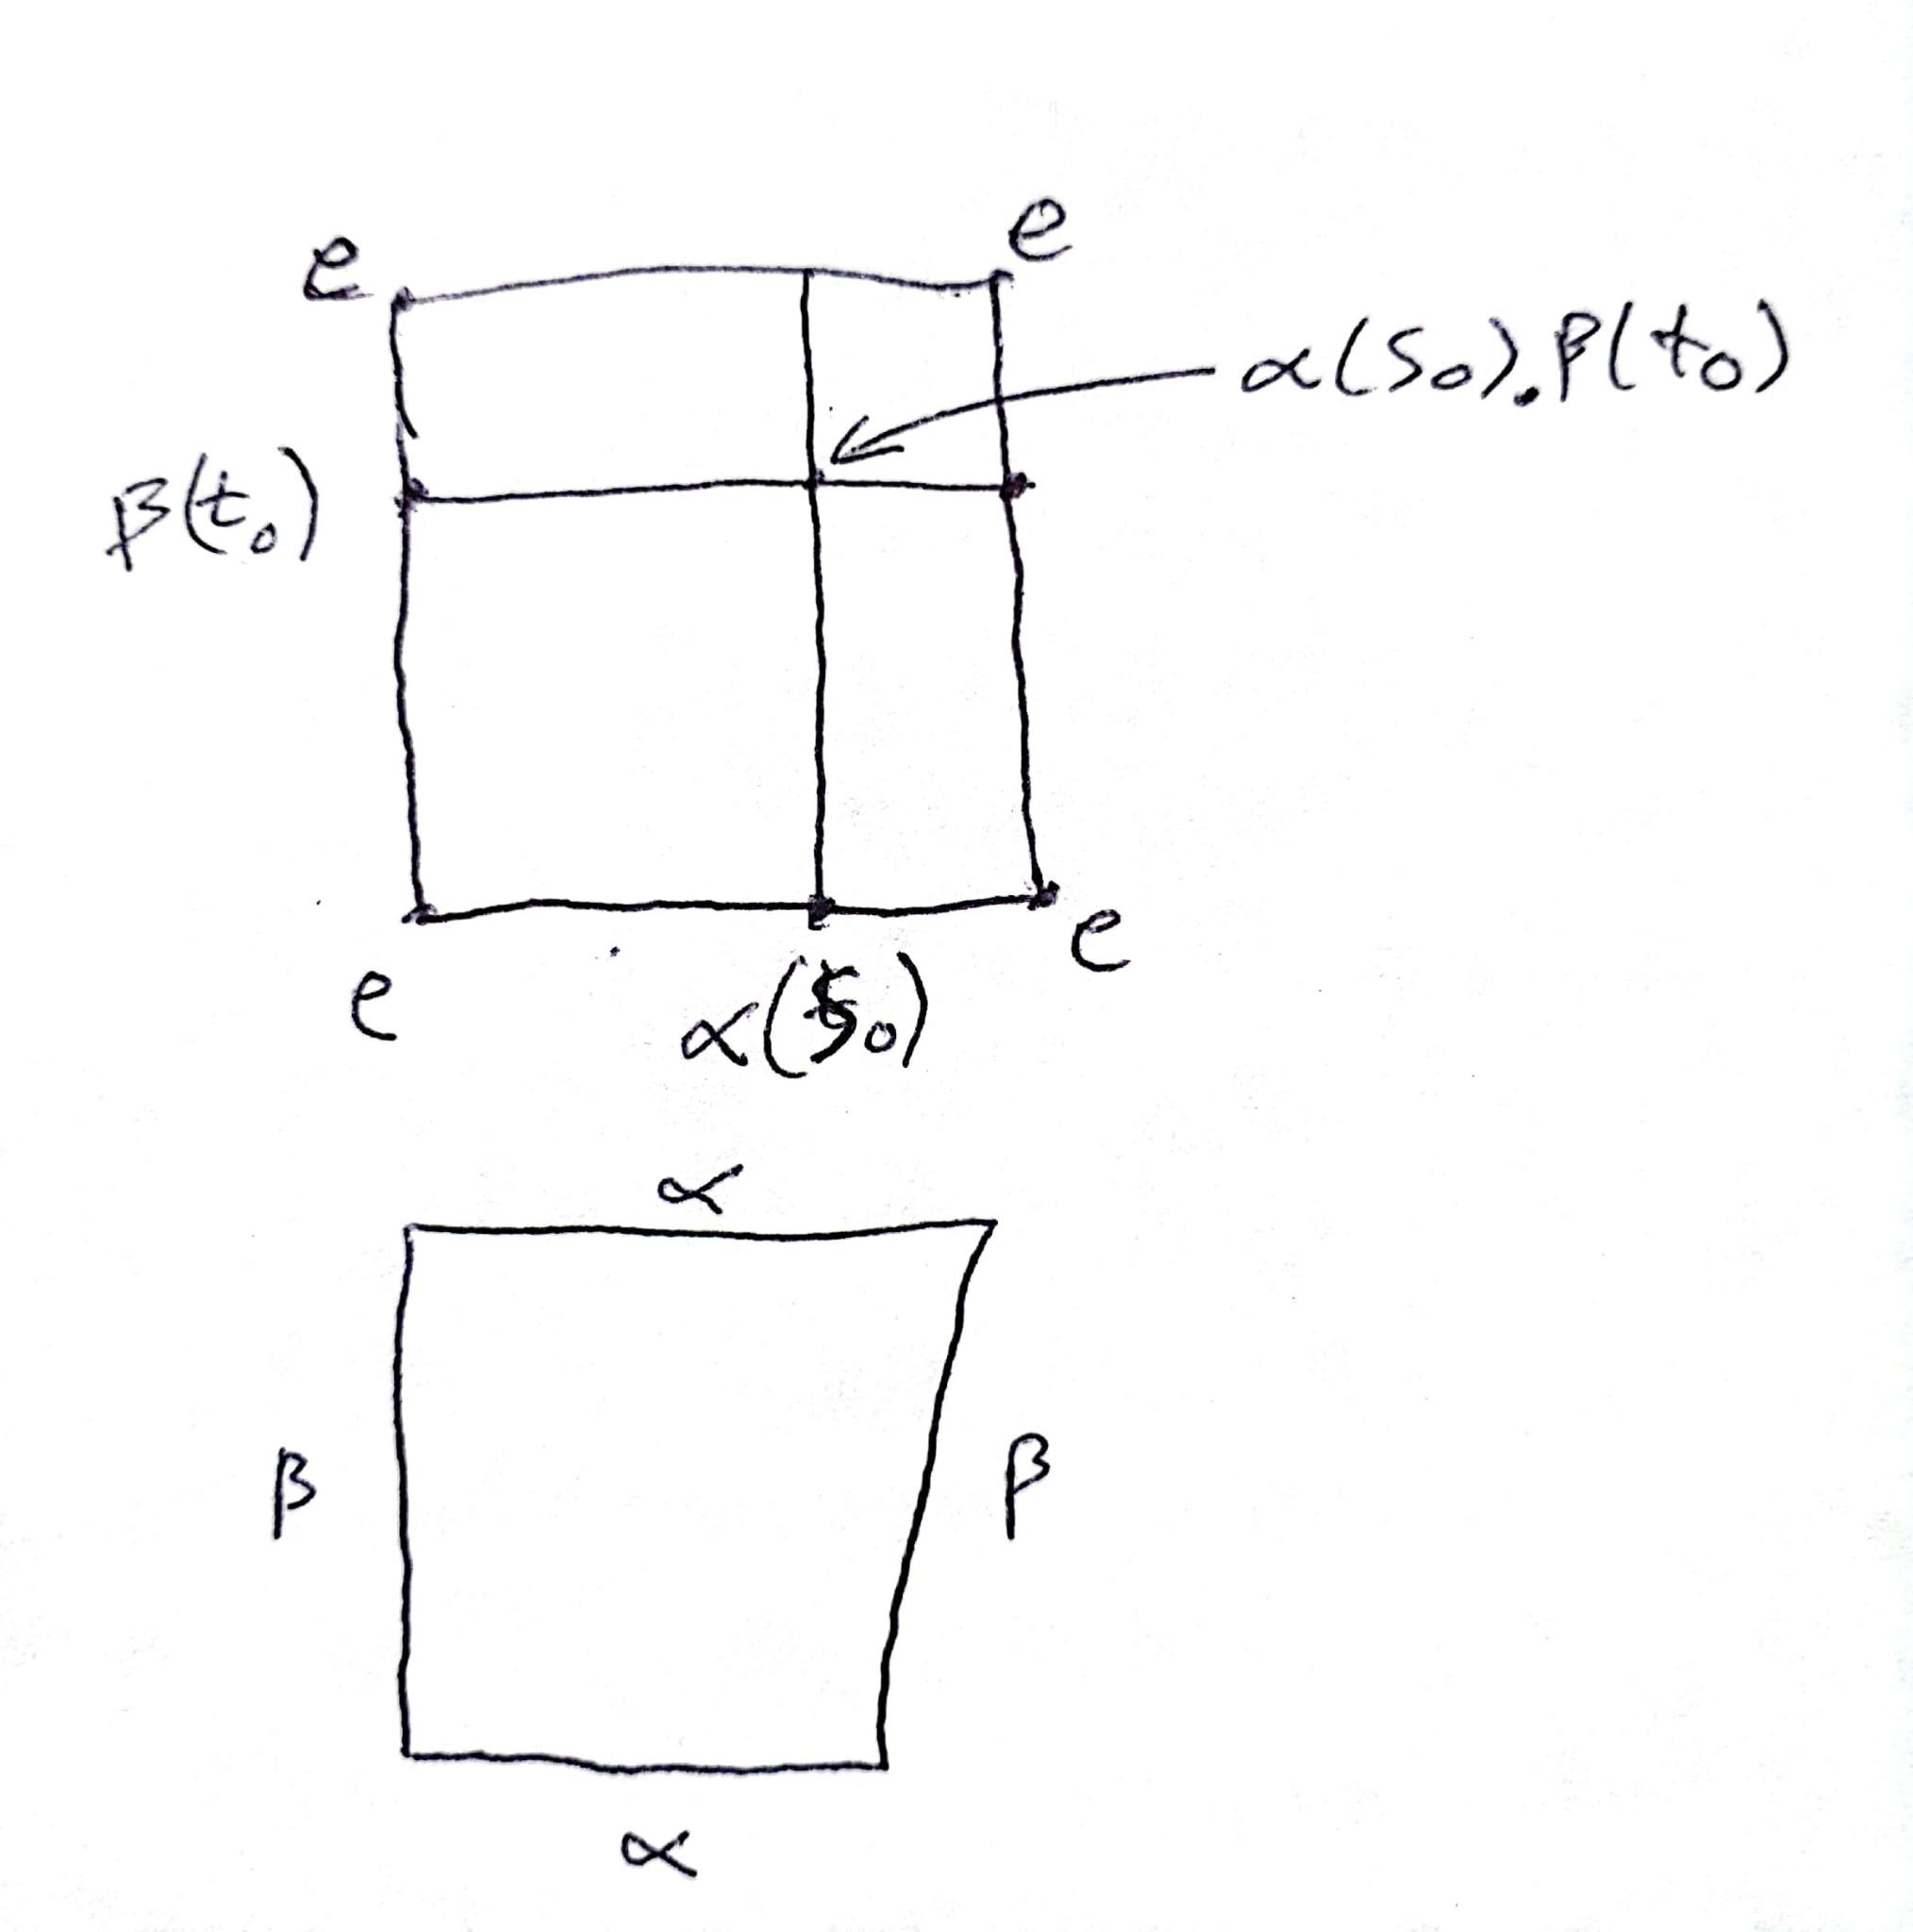 e e
α(s₀).β(t₀)
β(t₀)
e α(s₀) e
α
β β
α